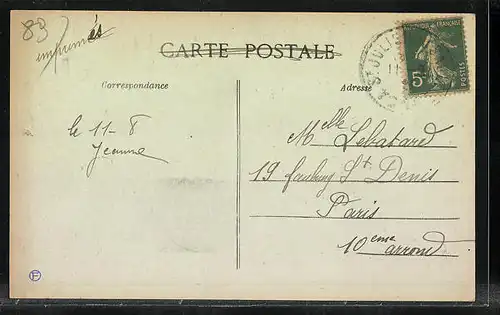 83
imprimés
CARTE POSTALE
Correspondance
Adresse
RÉPUBLIQUE FRANÇAISE
5c
POSTES
ST JULI
le 11-8
Jeanne
Melle Lebatard
19 faubourg St Denis
Paris
10eme arrond
F